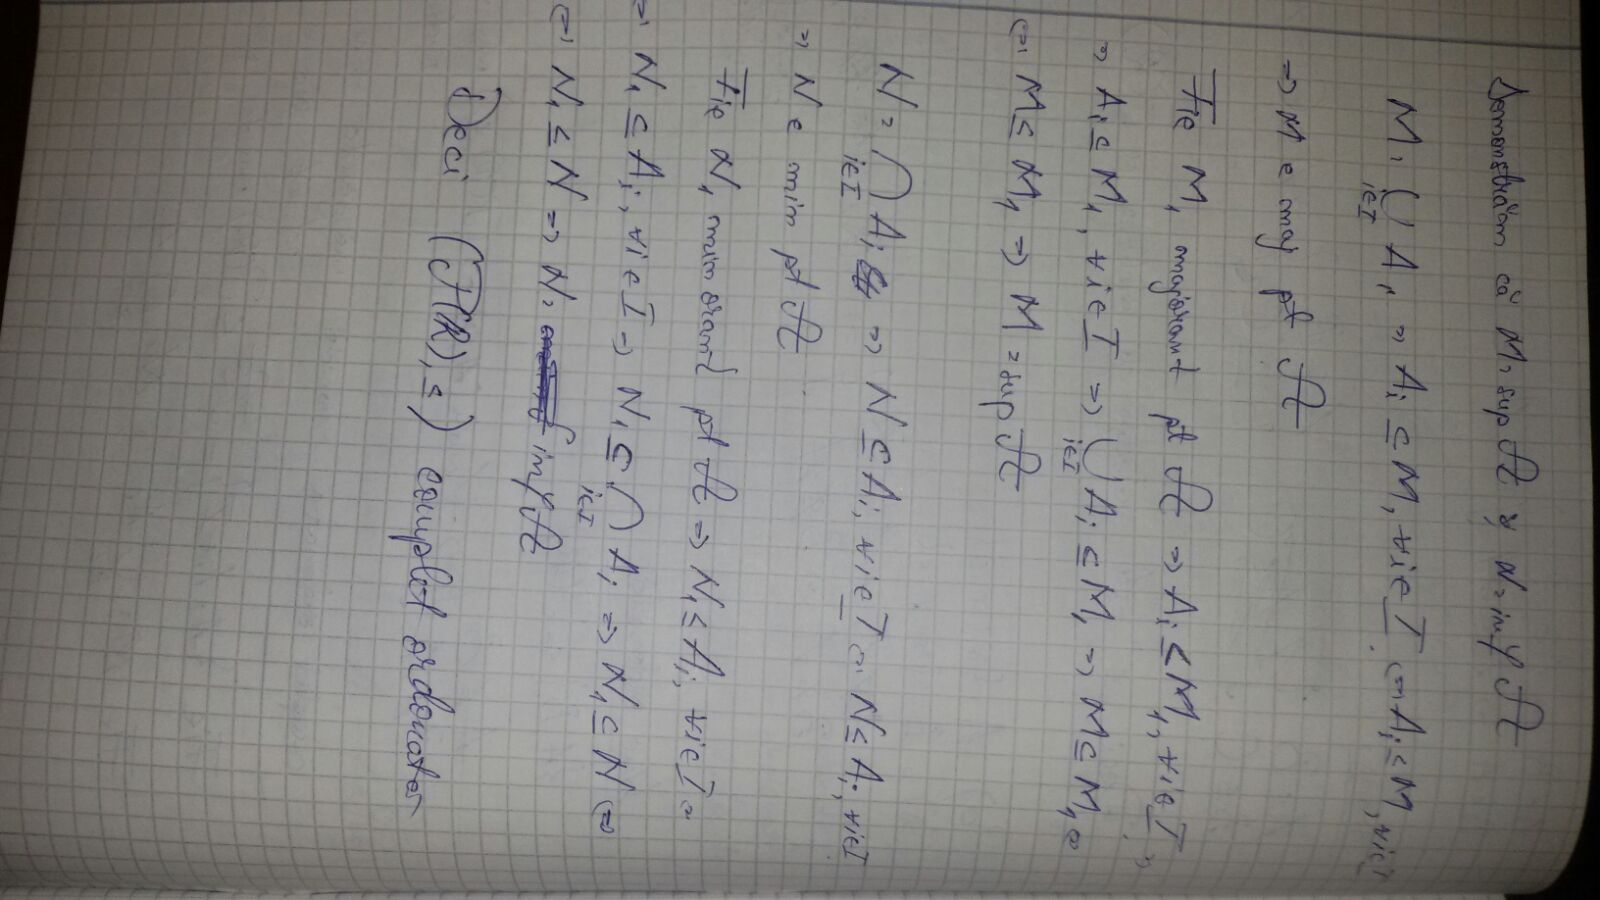 Demonstrăm că M = sup 𝒜 și N = inf 𝒜
M = ⋃_{i∈I} A_i ⇒ A_i ⊆ M, ∀i∈I ⇔ A_i ≤ M, ∀i∈I
⇒ M e maj pt 𝒜
Fie M₁ majorant pt 𝒜 ⇒ A_i ≤ M₁, ∀i∈I ⇒
⇒ A_i ⊆ M₁, ∀i∈I ⇒ ⋃_{i∈I} A_i ⊆ M₁ ⇒ M ⊆ M₁ ⇔
⇔ M ≤ M₁ ⇒ M = sup 𝒜
N = ⋂_{i∈I} A_i ⇒ N ⊆ A_i, ∀i∈I ⇔ N ≤ A_i, ∀i∈I
⇒ N e min pt 𝒜
Fie N₁ minorant pt 𝒜 ⇒ N₁ ≤ A_i, ∀i∈I ⇔
⇔ N₁ ⊆ A_i, ∀i∈I ⇒ N₁ ⊆ ⋂_{i∈I} A_i ⇒ N₁ ⊆ N ⇔
⇔ N₁ ≤ N ⇒ N = inf 𝒜
Deci (𝒫(R), ≤) complet ordonată